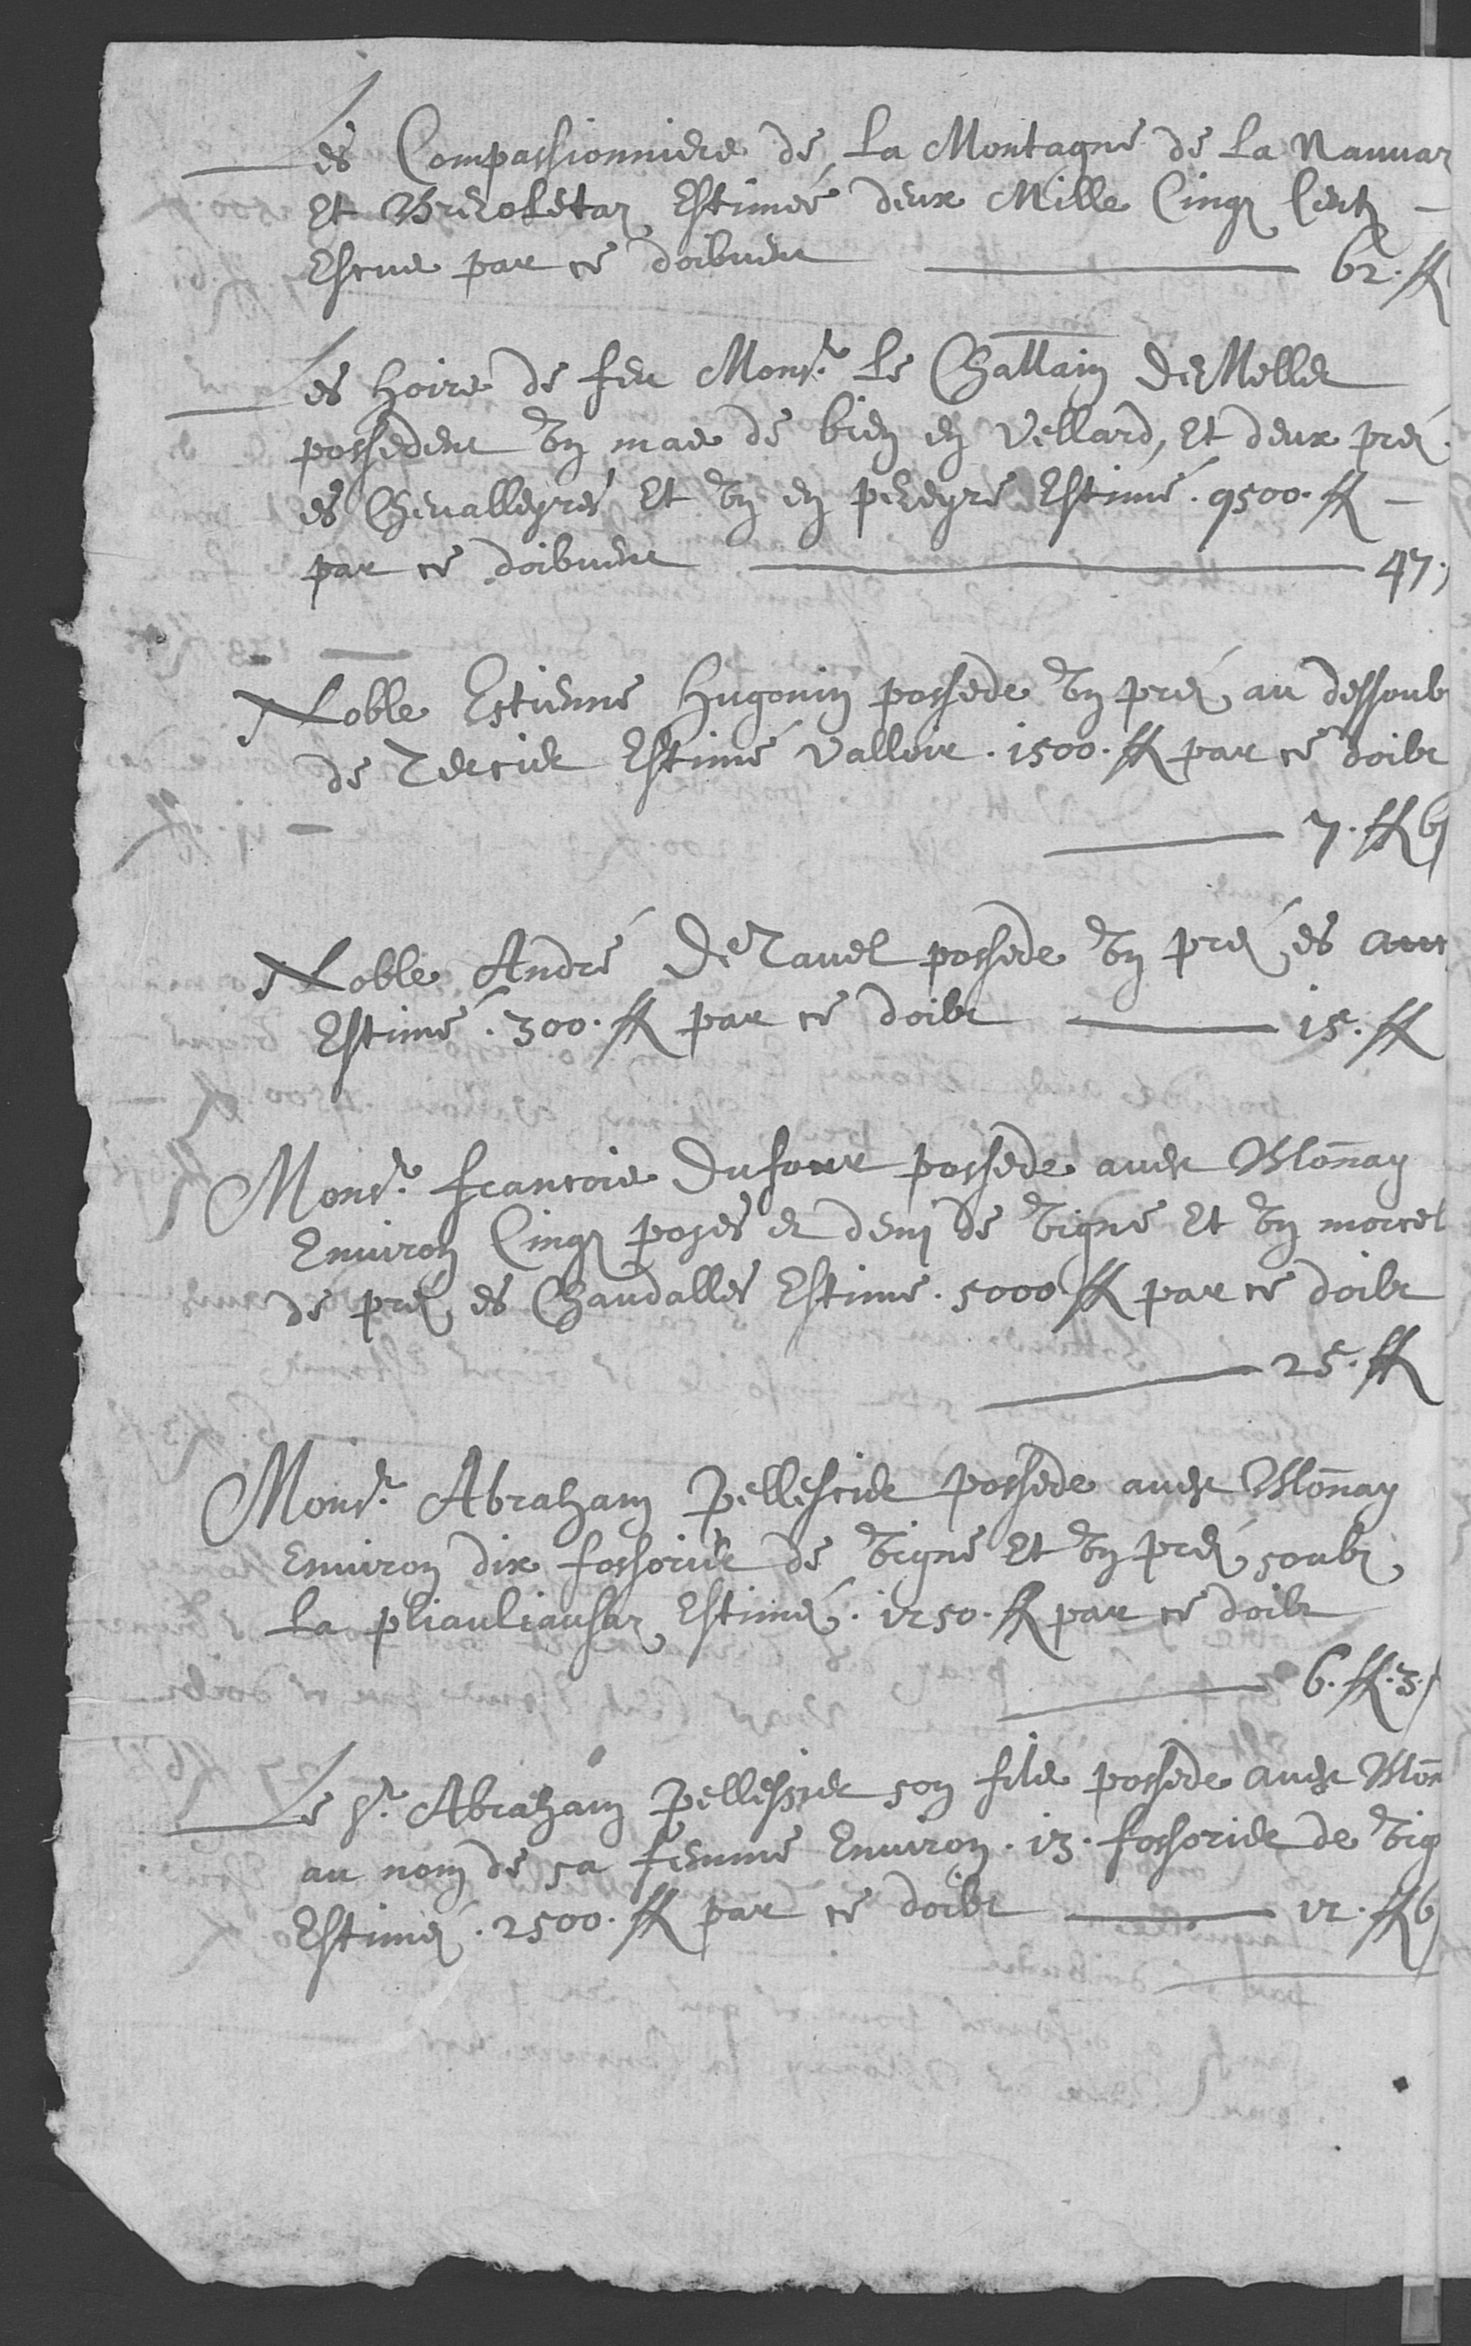 Les Compassionniers de La Montagne de La Nauuaz
Et Brecolletaz Estimée deux Mille Cinq Centz
Escus par ce doibuent 62. ff
Les Hoirs de feu Monsr. Le Challain De Mellet
possedent Vn mas de bien en Vellard, Et deux prez
es Cheualleyres Et Vn en pereyre Estimé. 9500. ff
par ce doibuent 47.
Noble Estienne Hugonin possede Vn prez au dessoub
de Tercier Estimé Valloir. 1500. ff par ce doibt
7. ff 6
Noble André De Tauel possede Vn prez es
Estimé. 300. ff par ce doibt 15. ff
Monsr. francois Dufour possede auec Blonay
Enuiron Cinq poses et demi de Vigne Et Vn morcel
de prez es Chaudalles Estime. 5000 ff par ce doibt
25. ff
Monsr. Abraham Pellessier possede auec Blonay
Enuiron dix fossorier de Vigne Et Vn prez soubz
La pliauliausaz Estimez. 1250. ff par ce doibt
6. ff. 3.
Le Sr. Abraham Pellessier son filz possede auec Blon
au nom de sa femme Enuiron. 13. fossorier de Vig
Estimez. 2500. ff par ce doibt 12. ff 6